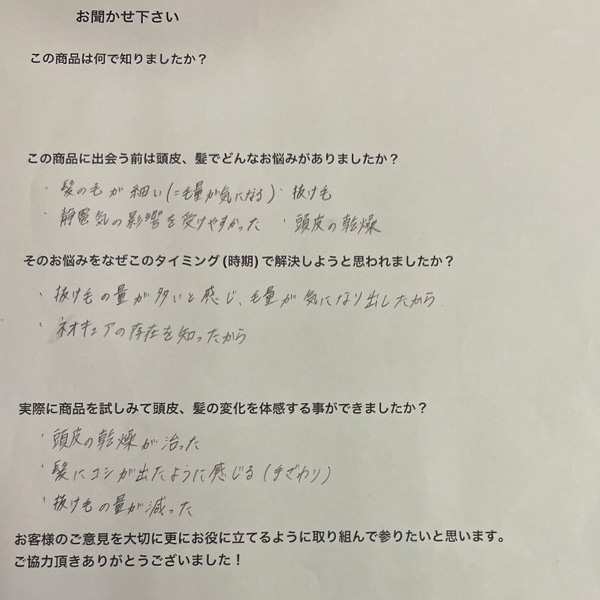 お聞かせ下さい
この商品は何で知りましたか？
この商品に出会う前は頭皮、髪でどんなお悩みがありましたか？
・髪の毛が細い(=毛量が気になる) ・抜け毛
・静電気の影響を受けやすかった ・頭皮の乾燥
そのお悩みをなぜこのタイミング(時期)で解決しようと思われましたか？
・抜け毛の量が多いと感じ、毛量が気になり出したから
・ネオキュアの存在を知ったから
実際に商品を試しみて頭皮、髪の変化を体感する事ができましたか？
・頭皮の乾燥が治った
・髪にコシが出たように感じる(手ざわり)
・抜け毛の量が減った
お客様のご意見を大切に更にお役に立てるように取り組んで参りたいと思います。
ご協力頂きありがとうございました！